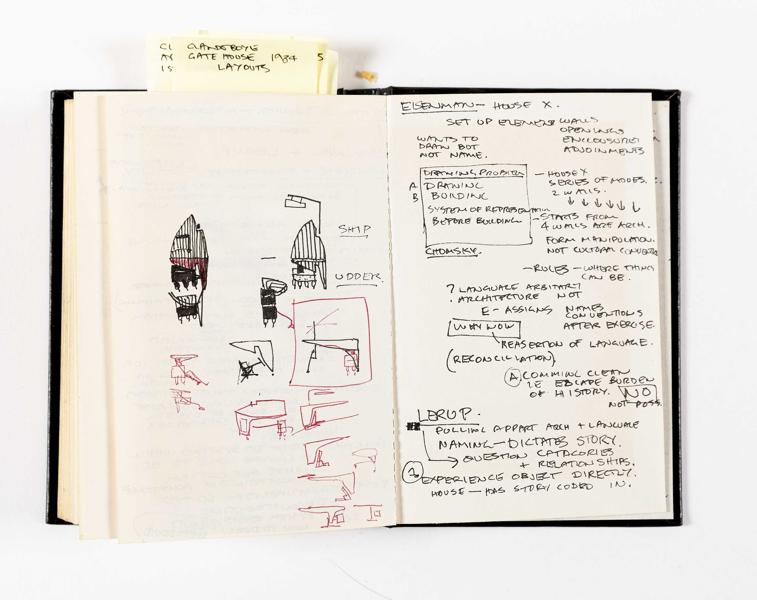 CLANDEBOYE
GATE HOUSE 1984 5
LAYOUTS
SHIP
UDDER
EISENMAN — HOUSE X.
SET UP ELEMENTS WALLS
OPENINGS
ENCLOSURE
WANTS TO
DRAW BUT
NOT NAME.
DRAWING
A DRAWING
B BUILDING
SYSTEM OF REPRESENTATION
BEFORE BUILDING
— HOUSE X
SERIES OF MODES.
2 WALLS.
— STARTS FROM
4 WALLS ARE ARCH.
FORM MANIPULATION.
NOT CULTURAL
CHOMSKY.
— RULES — WHERE THING
CAN BE.
? LANGUAGE ARBITARY
. ARCHITECTURE NOT
E — ASSIGNS NAMES
CONVENTIONS
AFTER EXERCISE.
WHY NOW
REASERTION OF LANGUAGE.
(RECONCILIATION)
A COMMING CLEAN
IE ESCAPE BURDEN
OF HISTORY. NO
NOT POSS.
LERUP.
PULLING APPART ARCH + LANGUAGE
NAMING — DICTATES STORY.
QUESTION CATAGORIES
+ RELATIONSHIPS.
EXPERIENCE OBJECT DIRECTLY.
HOUSE — HAS STORY CODED IN.